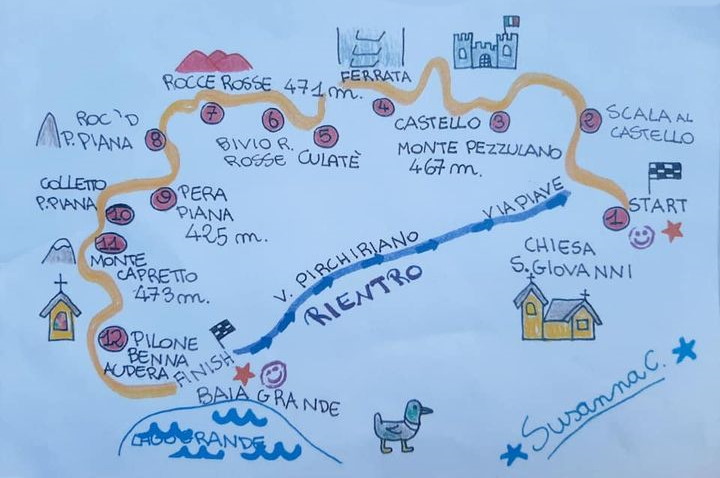 START
1
CHIESA
S. GIOVANNI
2
SCALA AL
CASTELLO
3
CASTELLO
MONTE PEZZULANO
467 m.
4
FERRATA
5
CULATÈ
6
BIVIO R.
ROSSE
7
ROCCE ROSSE 471 m.
8
ROC'D
P.PIANA
9
PERA
PIANA
425 m.
10
COLLETTO
P.PIANA
11
MONTE
CAPRETTO
473 m.
12
PILONE
BENNA
AUDERA
FINISH
BAIA GRANDE
LAGO GRANDE
V. PIRCHIRIANO
VIA PIAVE
RIENTRO
Susanna C.